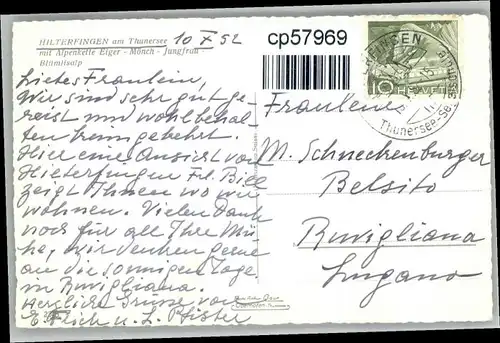 HILTERFINGEN am Thunersee
mit Alpenkette Eiger - Mönch - Jungfrau
Blümlisalp
10 X 52
cp57969
Liebes Fräulein,
Wir sind sehr gut ge-
reist und wohlbehal-
ten heimgekehrt.
Hier eine Ansicht von
Hilterfingen Frl. Bill
zeigt Ihnen wo wir
wohnen. Vielen Dank
noch für all Ihre Mü-
he, wir denken gerne
an die sonnigen Tage
in Ruvigliana.
Herzliche Grüsse von
E. Flich u. L. Pfister
10 HELVETIA
Thunersee
Fräulein
M. Schneckenburger
Belsito
Ruvigliana
Lugano